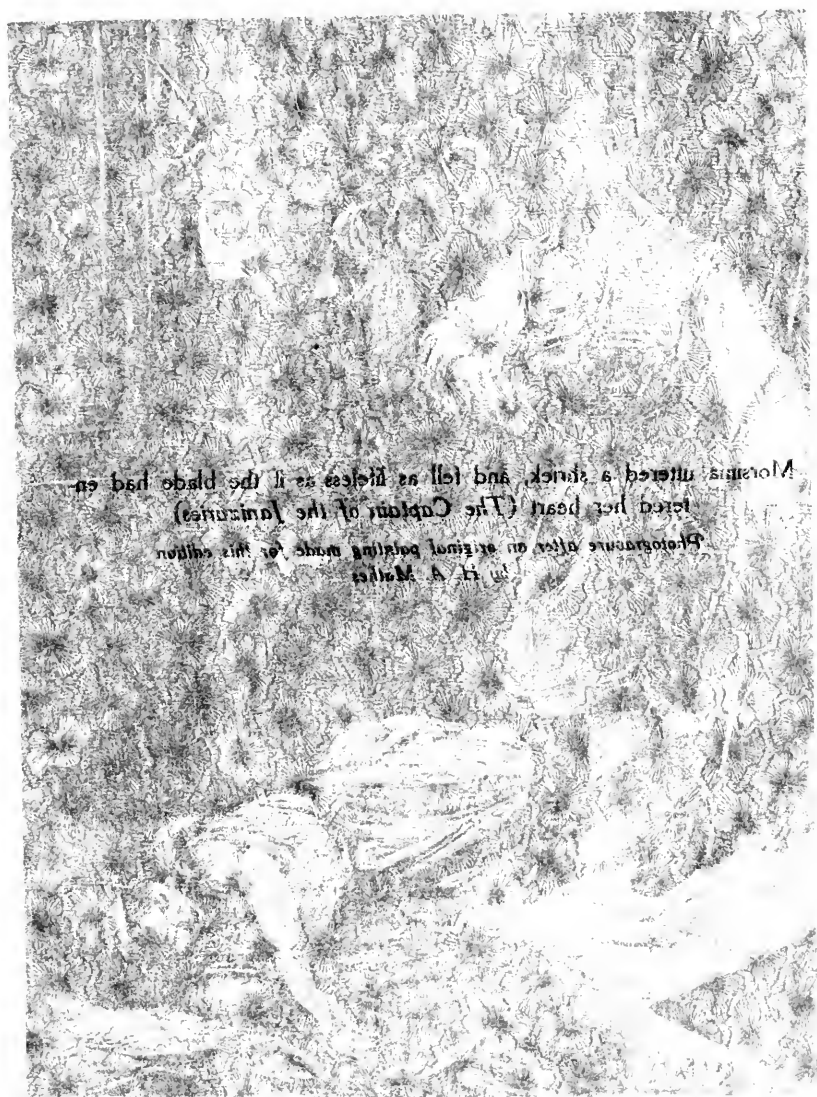 Morsinia uttered a shriek, and fell as lifeless as if the blade had en-
tered her heart (The Captain of the Janizaries)
Photogravure after an original painting made for this edition
by H. A. Mathes